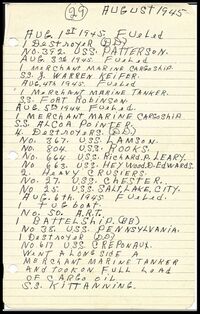 (29) AUGUST 1945
AUG 1st 1945. Fueled
1 Destroyer (DD)
No. 392. U.S.S. PATTERSON.
AUG 3rd 1945. Fueled
1 MERCHANT MARINE CARGO SHIP.
SS. J. WARREN KEIFER.
AUG 4th 1945. Fueled
1 MERCHANT MARINE TANKER.
SS. FORT ROBINSON.
AUG. 5th 1944 Fueled.
1 MERCHANT MARINE CARGO SHIP
SS. ALCOA POINTER
4 DESTROYERS. (DD)
No. 367. U.S.S. LAMSON.
No. 804. U.S.S. ROOKS.
No. 664. U.S.S. RICHARD. P. LEARY.
No. 663. U.S.S. HEYWOOD. L. EDWARDS.
2 HEAVY CRUSIERS.
No. 27. U.S.S. CHESTER.
No 25. U.S.S. SALT LAKE. CITY.
AUG. 6th 1945 Fueled.
1 Tug boat.
No. 50. A.R.T.
BATTELSHIP. (BB)
No 38. U.S.S. PENNSYLVANIA.
1 DESTROYER (DD)
No. 617 U.S.S.
WENT ALONG SIDE A
MERCHANT MARINE TANKER
AND TOOK ON FULL LOAD
OF CARGO OIL.
S.S. KITTANNING.